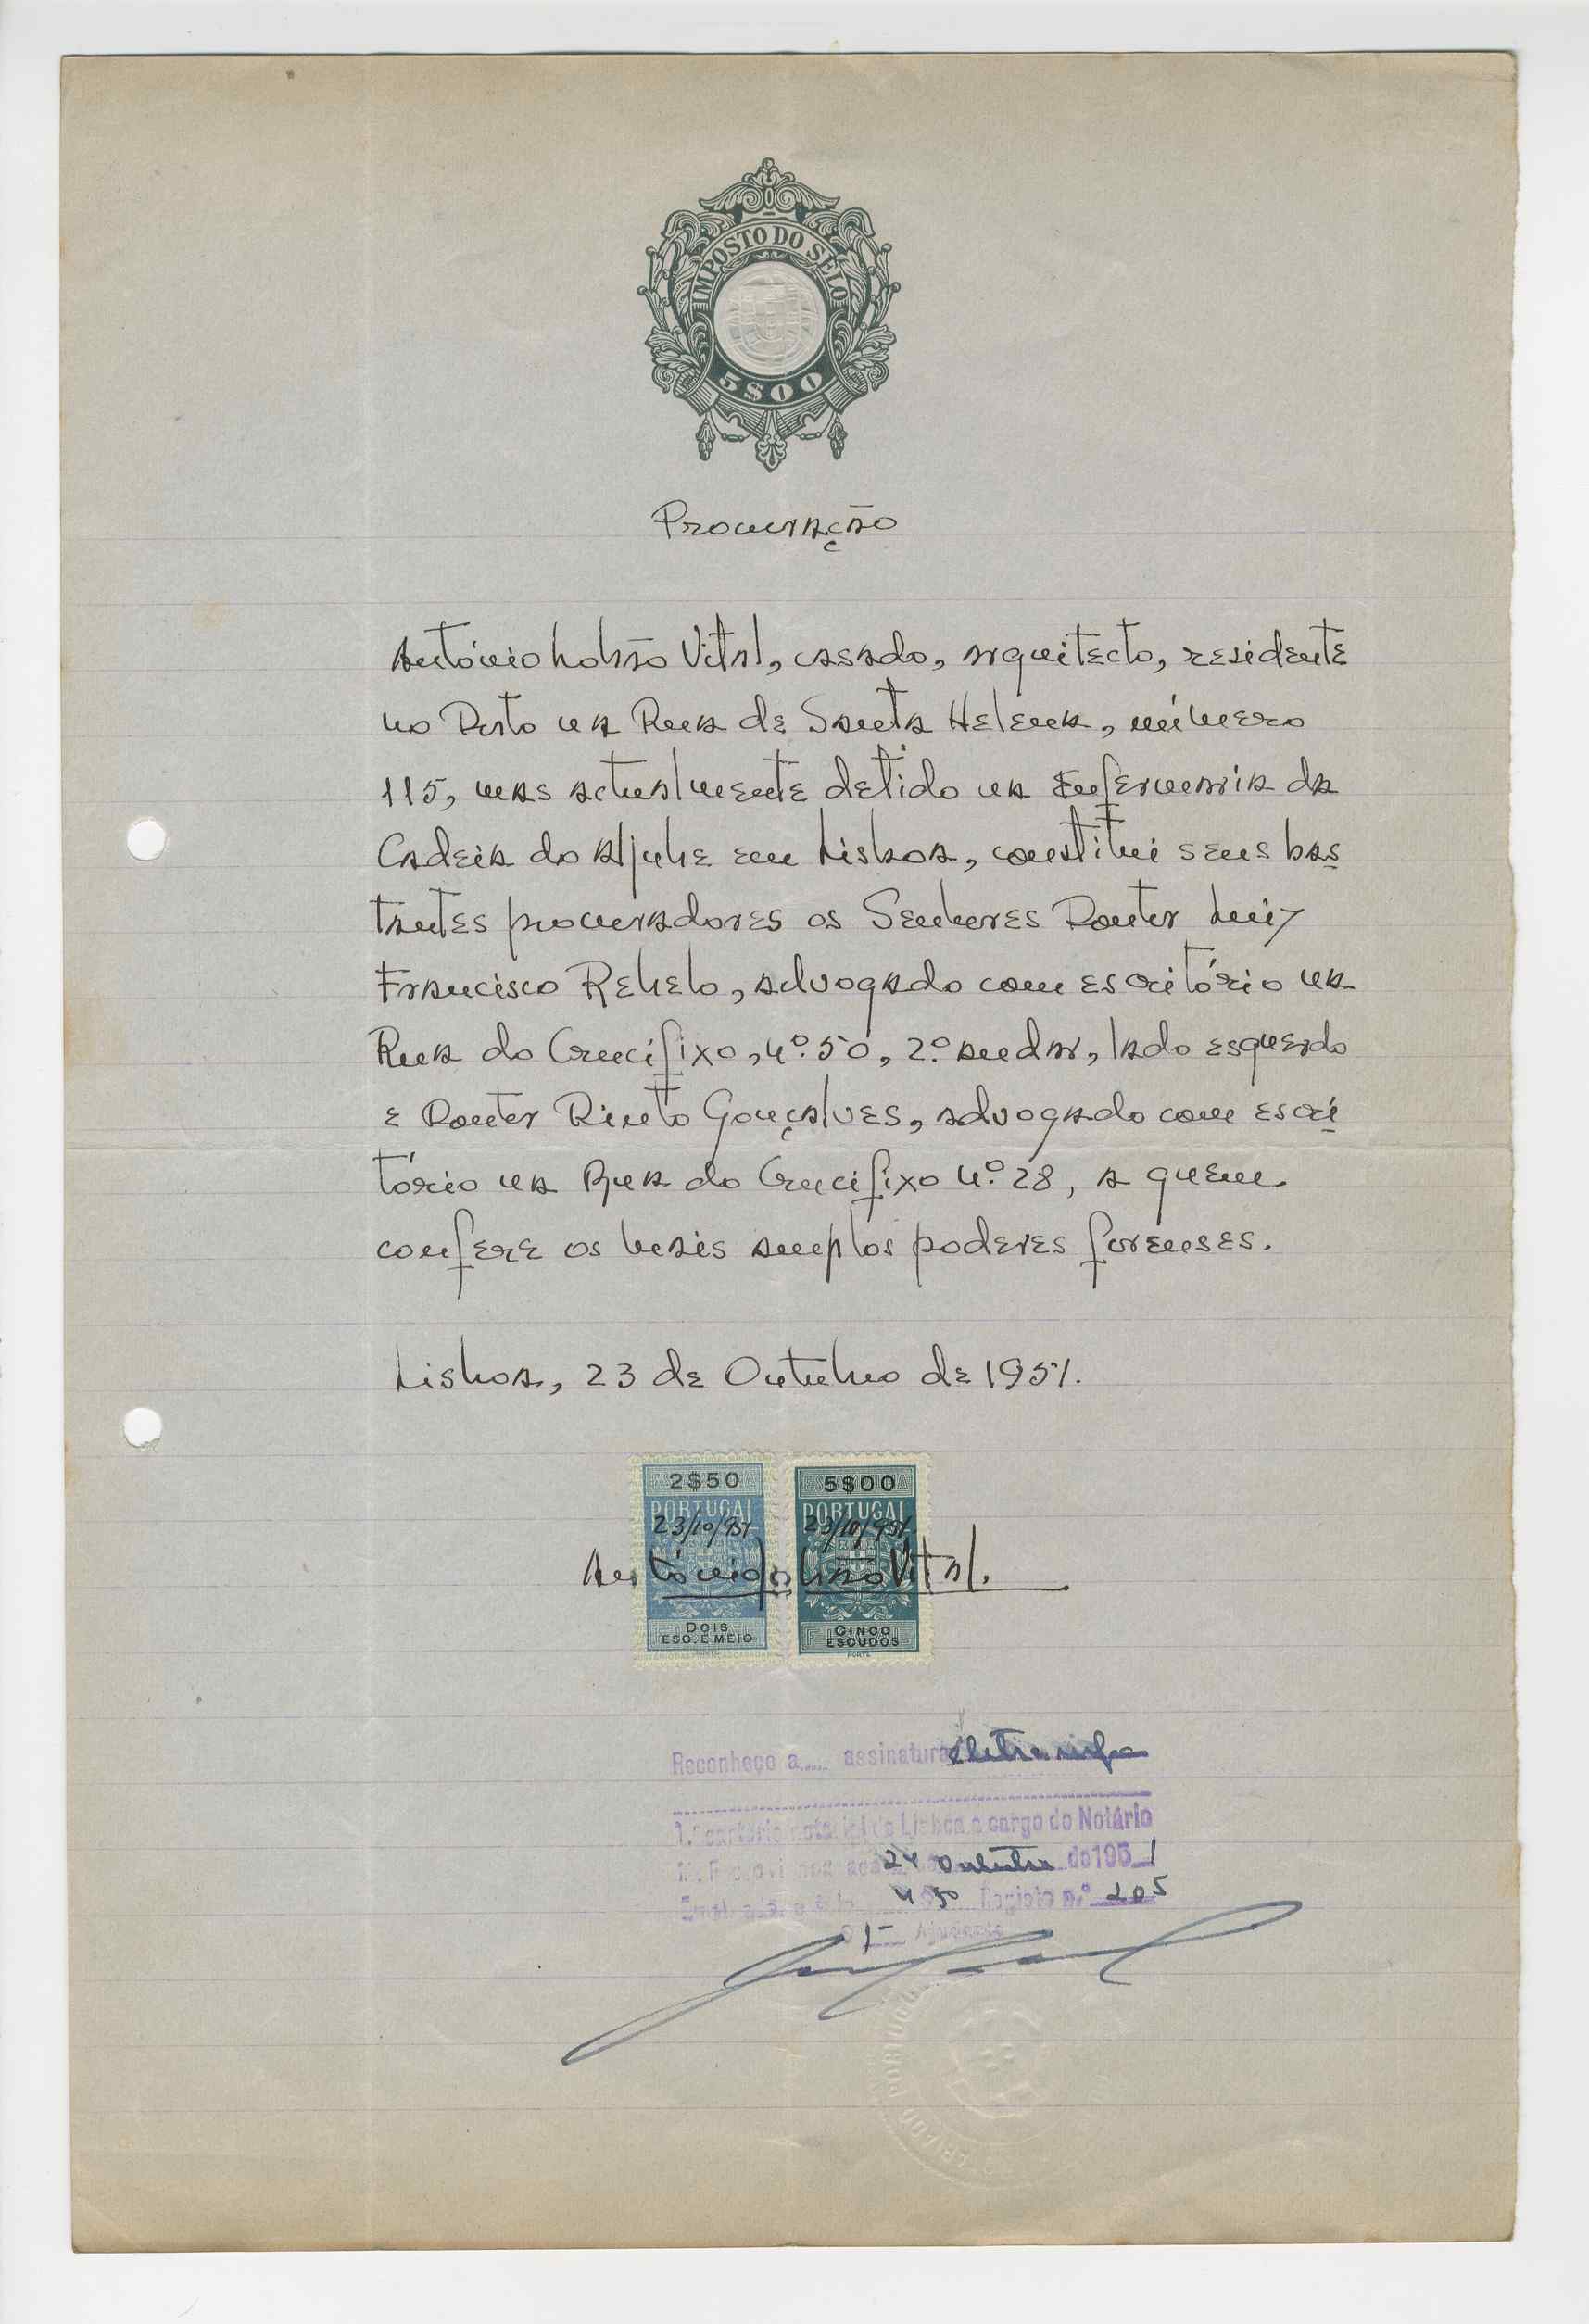 IMPOSTO DO SELO
5$00
Procuração
António Lobão Vital, casado, arquitecto, residente
no Porto na Rua de Santa Helena, número
115, mas actualmente detido na Enfermaria da
Cadeia do Aljube em Lisboa, constitui seus bas
tantes procuradores os Senhores Doutor Luiz
Francisco Rebelo, advogado com escritório na
Rua do Crucifixo, nº. 50, 2º. andar, lado esquerdo
e Doutor Pinto Gonçalves, advogado com escri
tório na Rua do Crucifixo nº. 28, a quem
confere os mais amplos poderes forenses.
Lisboa, 23 de Outubro de 1951.
2$50 5$00
PORTUGAL PORTUGAL
23/10/951. 23/10/951.
António Lobão Vital.
DOIS ESC. E MEIO CINCO ESCUDOS
Reconheço a assinatura
1.º cartório notarial de Lisboa a cargo do Notário
24 Outubro de 1951
4 50 Registo n.º 205
O 1 Ajudante